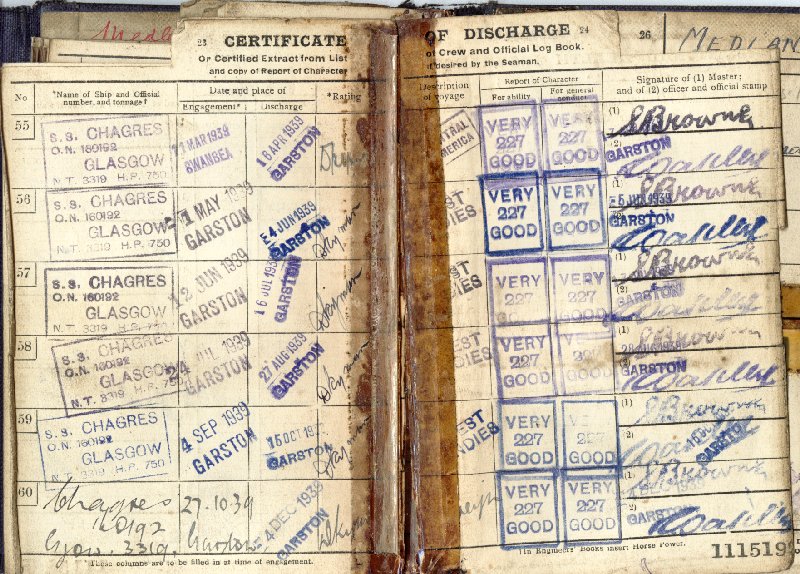 23
CERTIFICATE
Or Certified Extract from List
and copy of Report of Character
No
*Name of Ship and Official number, and tonnage†
Date and place of
Engagement*
Discharge
*Rating
55
S.S. CHAGRES
O.N. 160192
GLASGOW
N.T. 3319 H.P. 750
MAR 1939
SWANSEA
18 APR 1939
GARSTON
56
S.S. CHAGRES
O.N. 160192
GLASGOW
N.T. 3319 H.P. 750
1 MAY 1939
GARSTON
-4 JUN 1939
GARSTON
Dayman
57
S.S. CHAGRES
O.N. 160192
GLASGOW
N.T. 3319 H.P. 750
12 JUN 1939
GARSTON
16 JUL 1939
GARSTON
58
S.S. CHAGRES
O.N. 160192
GLASGOW
N.T. 3319 H.P. 750
24 JUL 1939
GARSTON
27 AUG 1939
GARSTON
Dayman
59
S.S. CHAGRES
O.N. 160192
GLASGOW
N.T. 3319 H.P. 750
4 SEP 1939
GARSTON
15 OCT
GARSTON
Dayman
60
Chagres
160192
Glasgow. 3319.
27.10.39
Garston
-4 DEC 1939
GARSTON
*These columns are to be filled in at time of engagement.
OF DISCHARGE
24
of Crew and Official Log Book.
if desired by the Seaman.
26
MEDLAN
Description of voyage
Report of Character
For ability
For general conduct
Signature of (1) Master; and of (2) officer and official stamp
CENTRAL
AMERICA
VERY
227
GOOD
VERY
227
GOOD
(1)
Browne
(2)
GARSTON
VERY
227
GOOD
VERY
227
GOOD
(1)
Browne
-5 JUN 1939
GARSTON
VERY
227
GOOD
VERY
227
GOOD
(1)
Browne
(2)
GARSTON
VERY
227
GOOD
VERY
GOOD
(1)
Browne
28 AUG 1939
GARSTON
WEST
INDIES
VERY
227
GOOD
VERY
227
GOOD
(1)
Browne
(2)
GARSTON
VERY
227
GOOD
VERY
227
GOOD
(1)
Browne
(2)
GARSTON
†In Engineers' Books insert Horse Power.
111519